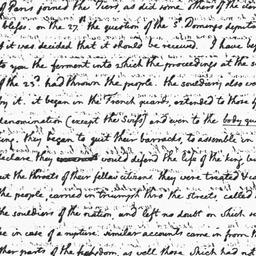 of Paris joined the Tiers, as did some others of the
blesse. on the 27th the question of the St. Domingo deputa
it was decided that it should be received. I have be
to you the ferment into which the proceedings at the s
of the 23d had thrown the people. the souldiery also we
by it. it began in the French guards, extended to those of
denomination (except the Swiss) and even to the body gu
ing. they began to quit their barracks, to assemble in
declare they would defend the life of the king, bu
ut the throats of their fellow citizens. they were treated & c
the people, carried in triumph thro' the streets, called
the souldiers of the nation, and left no doubt on which s
be in case of a rupture. similar accounts came in from t
ther parts of the kingdom, as well those which had not